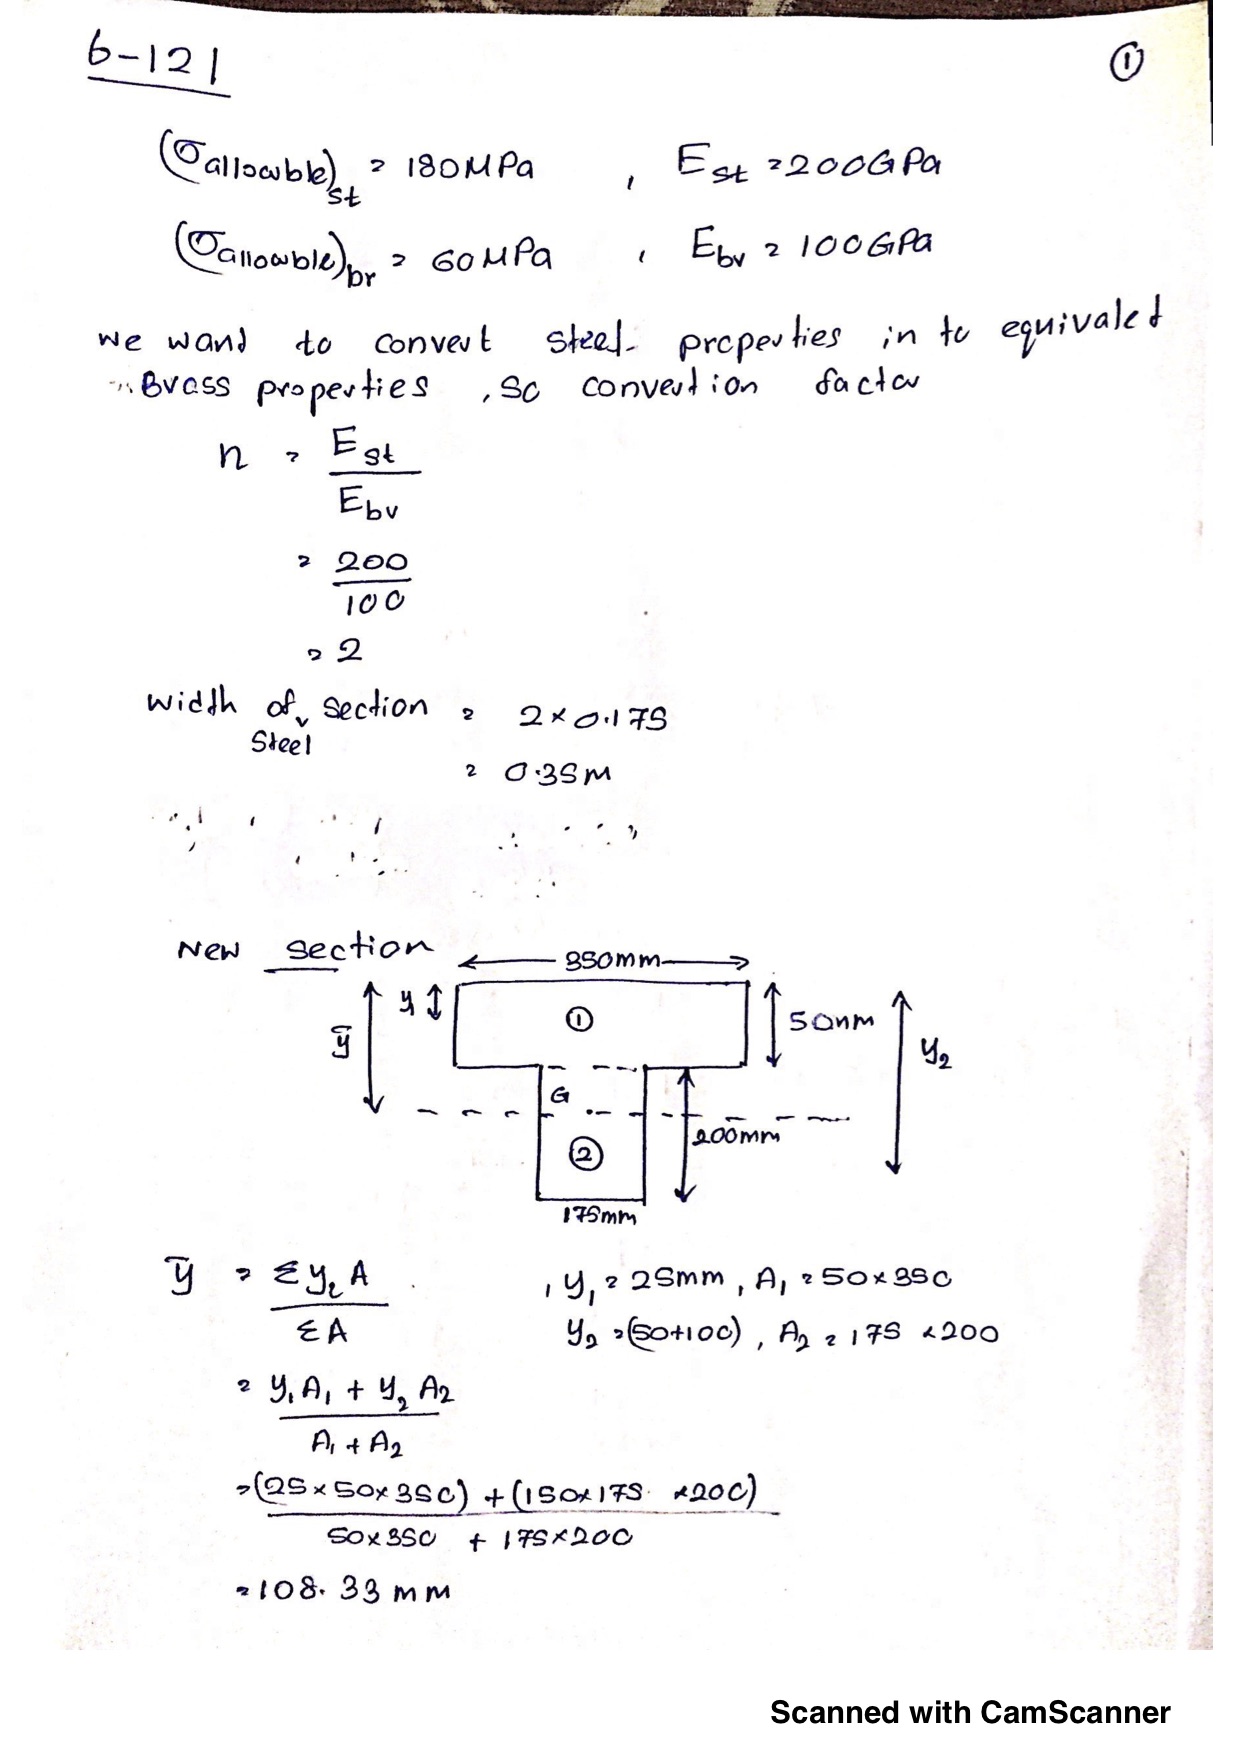 6-121
①
(σallowable)st = 180MPa , Est = 200GPa
(σallowable)br = 60MPa , Ebr = 100GPa
we want to convert steel properties in to equivaled
Brass properties , so convertion factor
n = Est
Ebr
= 200
100
= 2
width of section = 2 × 0.175
steel
= 0.35m
New section
350mm
y
ȳ
①
50mm
y2
G
200mm
②
175mm
ȳ = Σy2 A , y1 = 25mm , A1 = 50×350
ΣA y2 = (50+100) , A2 = 175 × 200
= y1A1 + y2 A2
A1 + A2
= (25 × 50 × 350) + (150 × 175 × 200)
50×350 + 175×200
= 108.33 mm
Scanned with CamScanner